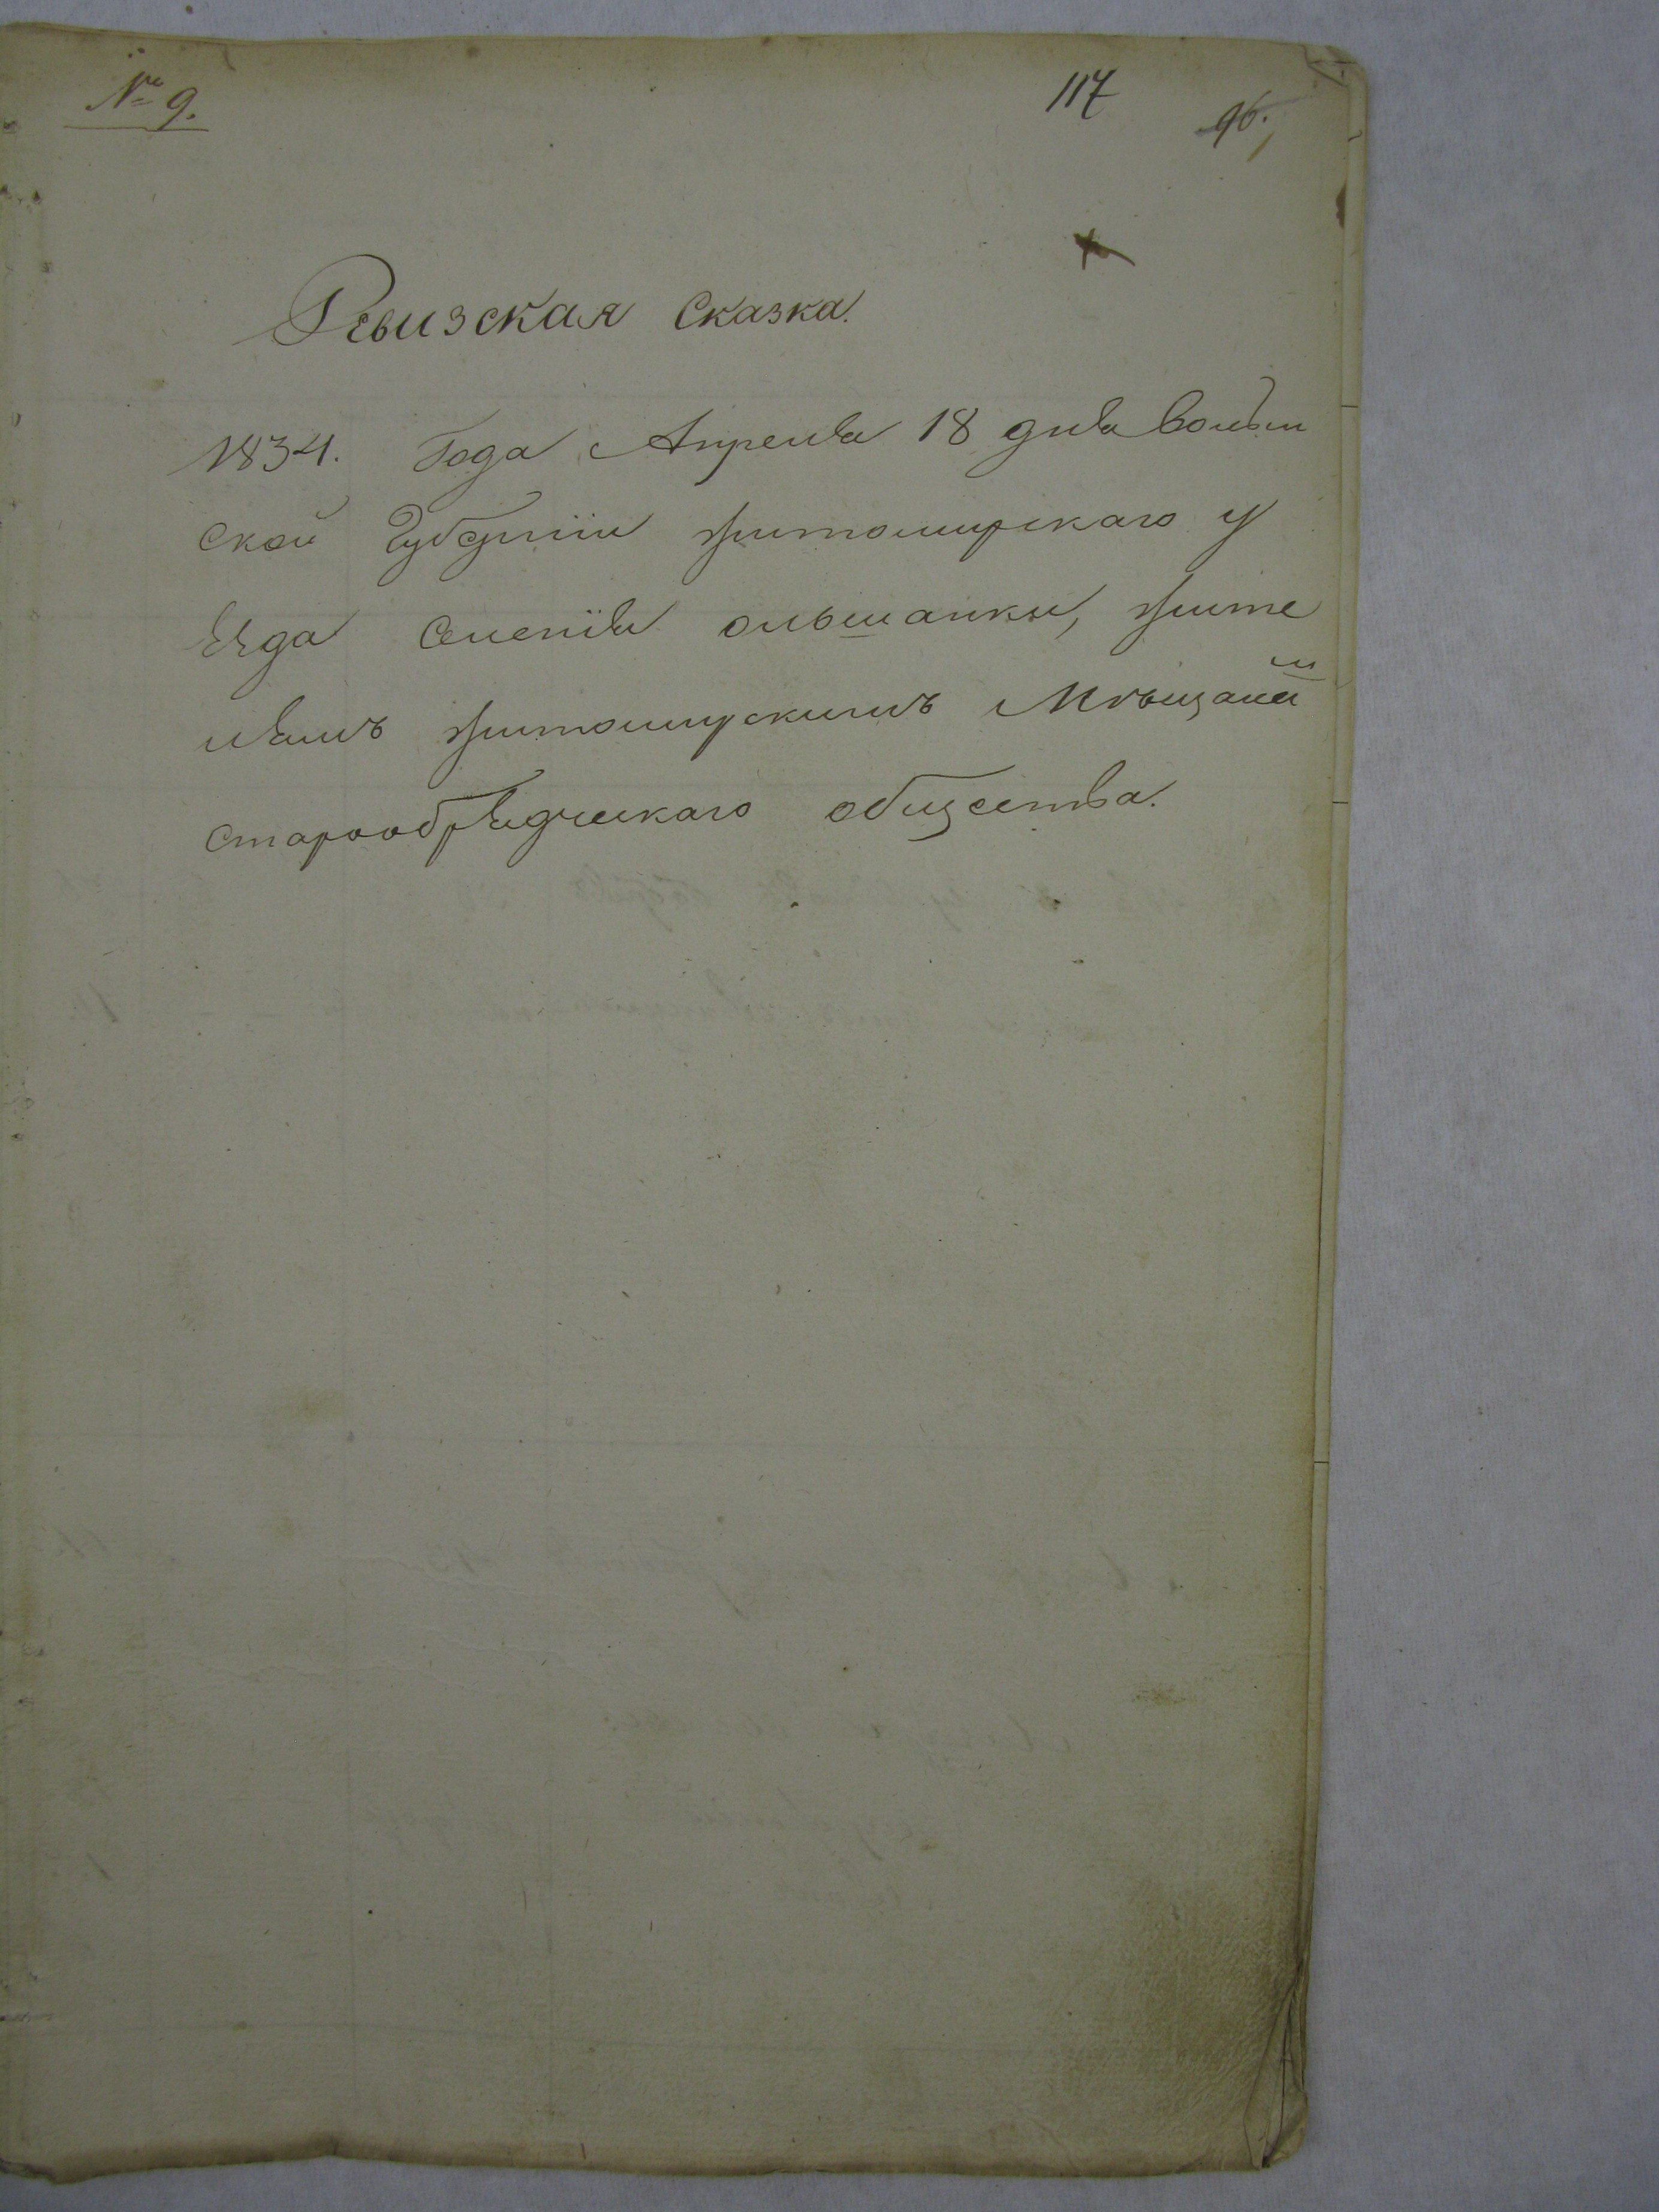 № 9.
117
96.
Ревизская Сказка.
1834. Года Апреля 18 дня Волын
ской Губернии житомирскаго у
езда Селения ольшанки, жите
лямъ житомирскимъ Мещанам
старообрядческаго общества.